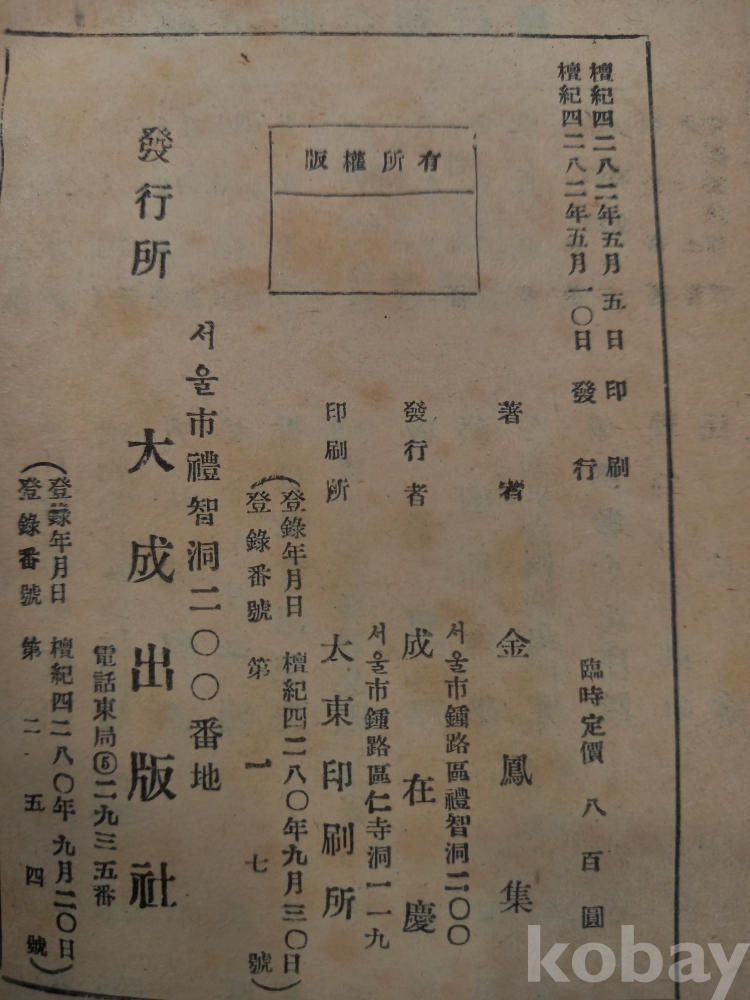 檀紀四二八二年五月五日 印刷
檀紀四二八二年五月一〇日 發行
臨時定價 八百圓
版權所有
著者 金鳳集
서울市鍾路區禮智洞二〇〇
發行者 成在慶
서울市鍾路區仁寺洞一一九
印刷所 大東印刷所
(登錄年月日 檀紀四二八〇年九月三〇日
登錄番號 第一七號)
서울市禮智洞二〇〇番地
發行所 大成出版社
電話東局⑤二九三五番
(登錄年月日 檀紀四二八〇年九月二〇日
登錄番號 第二五四號)
kobay